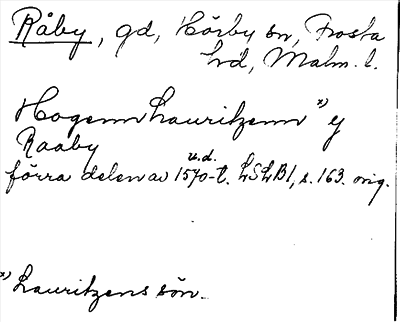 Råby, gd, Hörby sn, Frosta
hd, Malm. l.
Hogenn Lauritzenn x) y
Raaby
u.d.
förra delen av 1570-t. LSLB1, s. 163. orig.
x) Lauritzens sön.